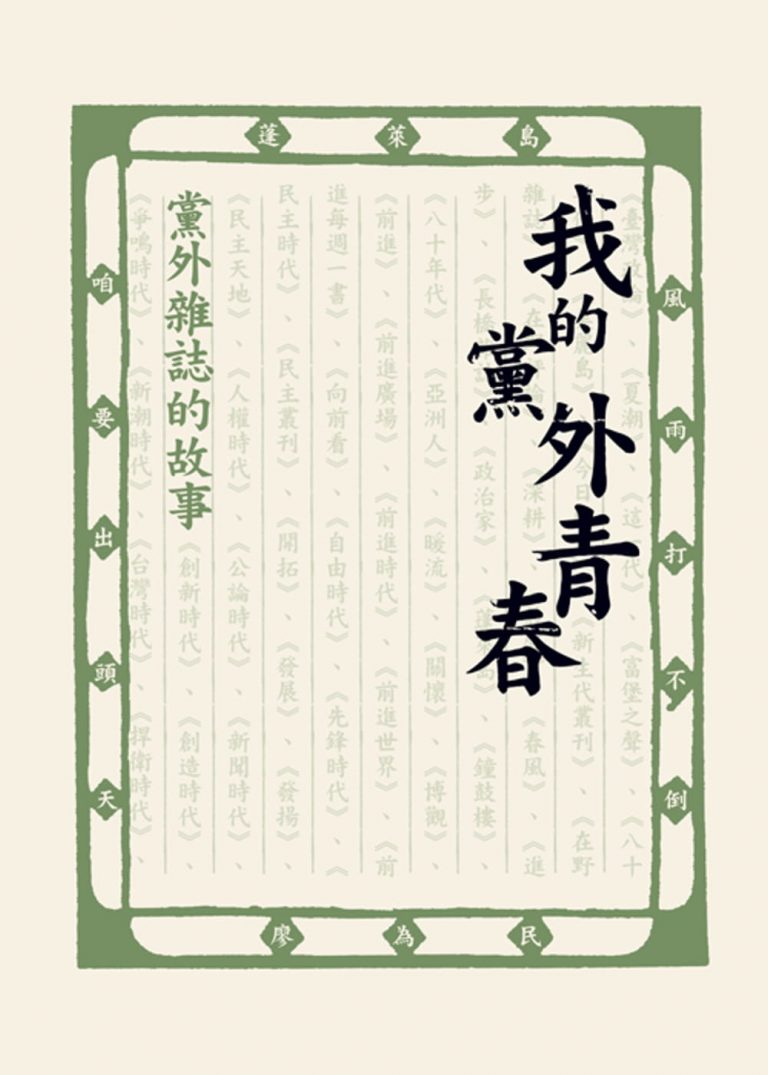 蓬萊島
風雨打不倒
我的黨外青春
《臺灣政論》、《夏潮》、《這一代》、《富堡之聲》、《八十
麗島》、今日《新生代叢刊》、《在野
雜誌》、《在論《深耕》、《春風》、《進
步》、《長橋《政治家》、《蓬萊島》、《鐘鼓樓》、
《八十年代》、《亞洲人》、《暖流》、《關懷》、《博觀》、
《前進》、《前進廣場》、《前進時代》、《前進世界》、《前
進每週一書》、《向前看》、《自由時代》、《先鋒時代》、《
民主時代》、《民主叢刊》、《開拓》、《發展》、《發揚》、
《民主天地》、《人權時代》、《公論時代》、《新聞時代》、
黨外雜誌的故事
《創新時代》、《創造時代》、
《爭鳴時代》、《新潮時代》、《台灣時代》、《捍衛時代》、
咱要出頭天
廖為民